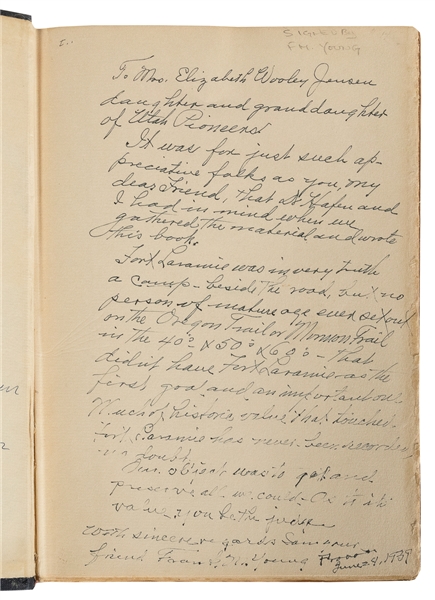 I..
Signed By
F.M. Young
To Mrs. Elizabeth Wooley Jensen
daughter and granddaughter
of Utah Pioneers!
It was for just such ap-
preciative folks as you, my
dear Friend, that Dr Hafen and
I had in mind when we
gathered the material and wrote
this book.
Fort Laramie was in very truth
a camp - beside the road, but no
person of mature age ever set out
on the Oregon Trail or Mormon Trail
in the 40s x 50s x 60s - that
didn't have Fort Laramie as the
first goal and an important one.
Much of historic value that touched
Fort Laramie has never been recorded
no doubt.
Our object was to get and
preserve all we could. Of its
value you be the judge
With sincere regards I am your
friend Fran M. Young
June 24, 1939